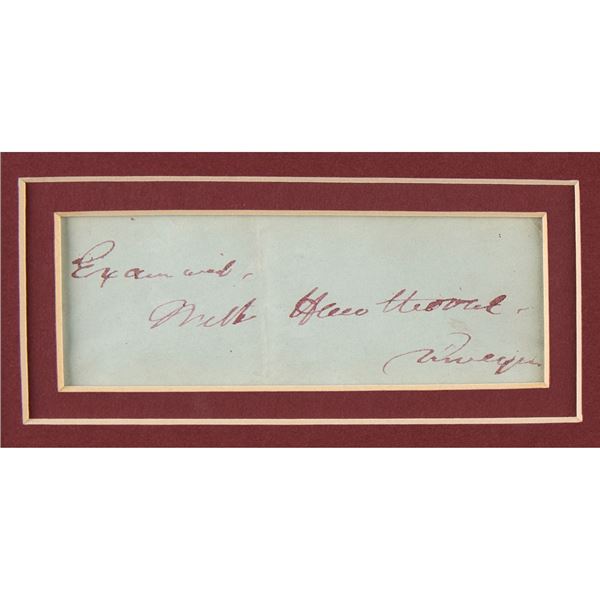 Examined.
Nath Hawthorne.
Surveyor